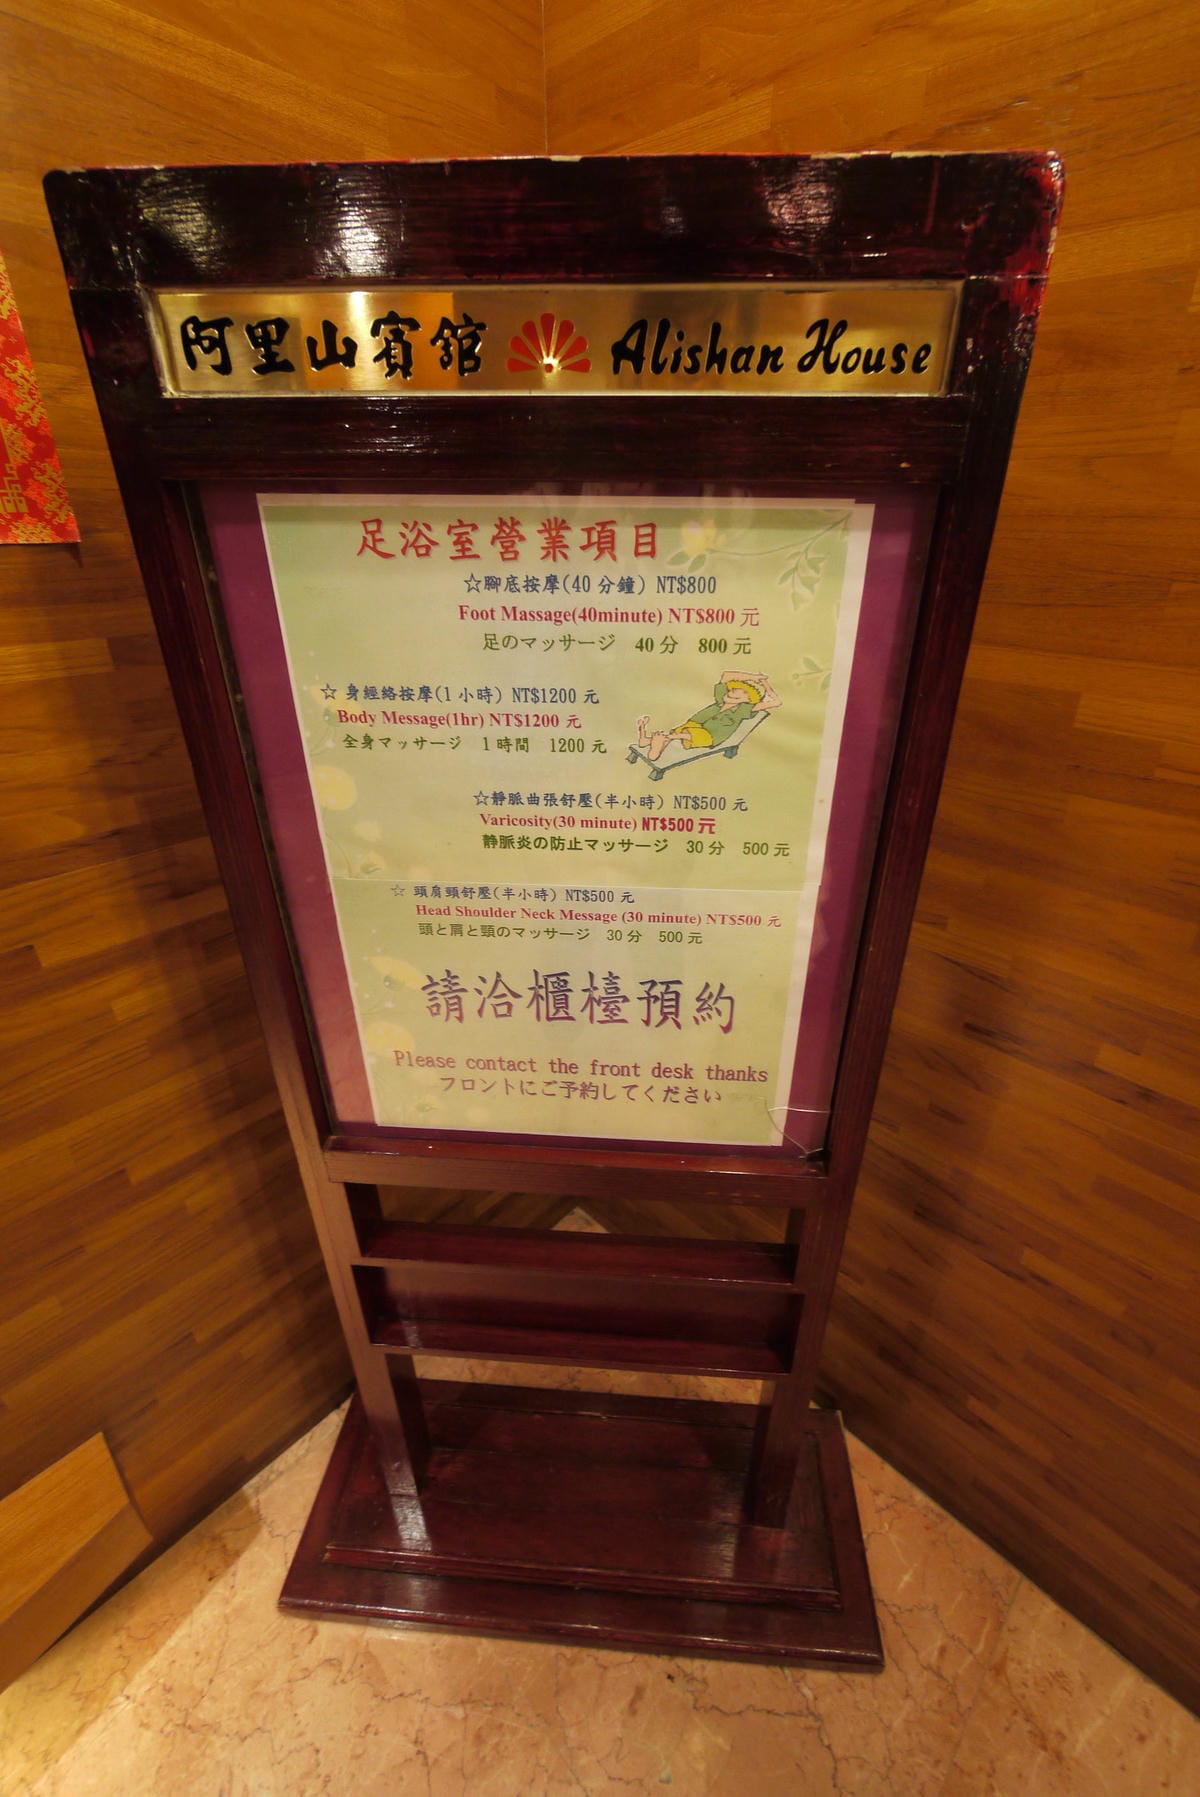 阿里山賓館 Alishan House
足浴室營業項目
☆腳底按摩(40 分鐘) NT$800
Foot Massage(40minute) NT$800 元
足のマッサージ 40 分 800 元
☆ 身經絡按摩(1 小時) NT$1200 元
Body Message(1hr) NT$1200 元
全身マッサージ 1 時間 1200 元
☆靜脈曲張舒壓(半小時) NT$500 元
Varicosity(30 minute) NT$500 元
静脈炎の防止マッサージ 30 分 500 元
☆ 頭肩頸舒壓(半小時) NT$500 元
Head Shoulder Neck Message (30 minute) NT$500 元
頭と肩と頸のマッサージ 30 分 500 元
請洽櫃檯預約
Please contact the front desk thanks
フロントにご予約してください